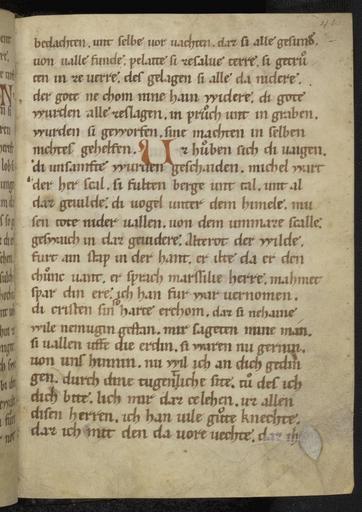 bedachten. unt selbe vor vachten. daz si alle gesunt.
von valle sunde. pelaite si resalue terre. si getrů
ten in ze verre. des gelagen si alle da nidere.
der gote ne chom nine hain widere. di gote
wurden alle zeslagen. in pruch unt in graben.
wurden si geworfen. sine machten in selben
nichtes gehelfen. Vz hůben sich di vaigen.
di unsamfte wurden geschaiden. michel wart
der her scal. si fulten berge unt tal. unt al
daz gevilde. di vogel unter dem himele. mu
sen tote nider vallen. von dem ummaze scalle.
gesprach in daz gewidere. Alterot der wilde.
furt ain stap in der hant. er ilte da er den
chůnc vant. er sprach marssilie herre. mahmet
spar din ere. ich han fur war vernomen.
di cristen sin harte erchom. daz si nehaine
wile nemugin gestan. mir sageten mine man.
si vallen uffe die erdin. si waren nu gernin.
von uns hinnin. nu wil ich an dich gedin
gen. durch dine tugentliche site. tů des ich
dich bite. lich mir daz celehen. vz allen
disen herren. ich han vile gůte knechte.
daz ich mit den da vore vechte. daz ih